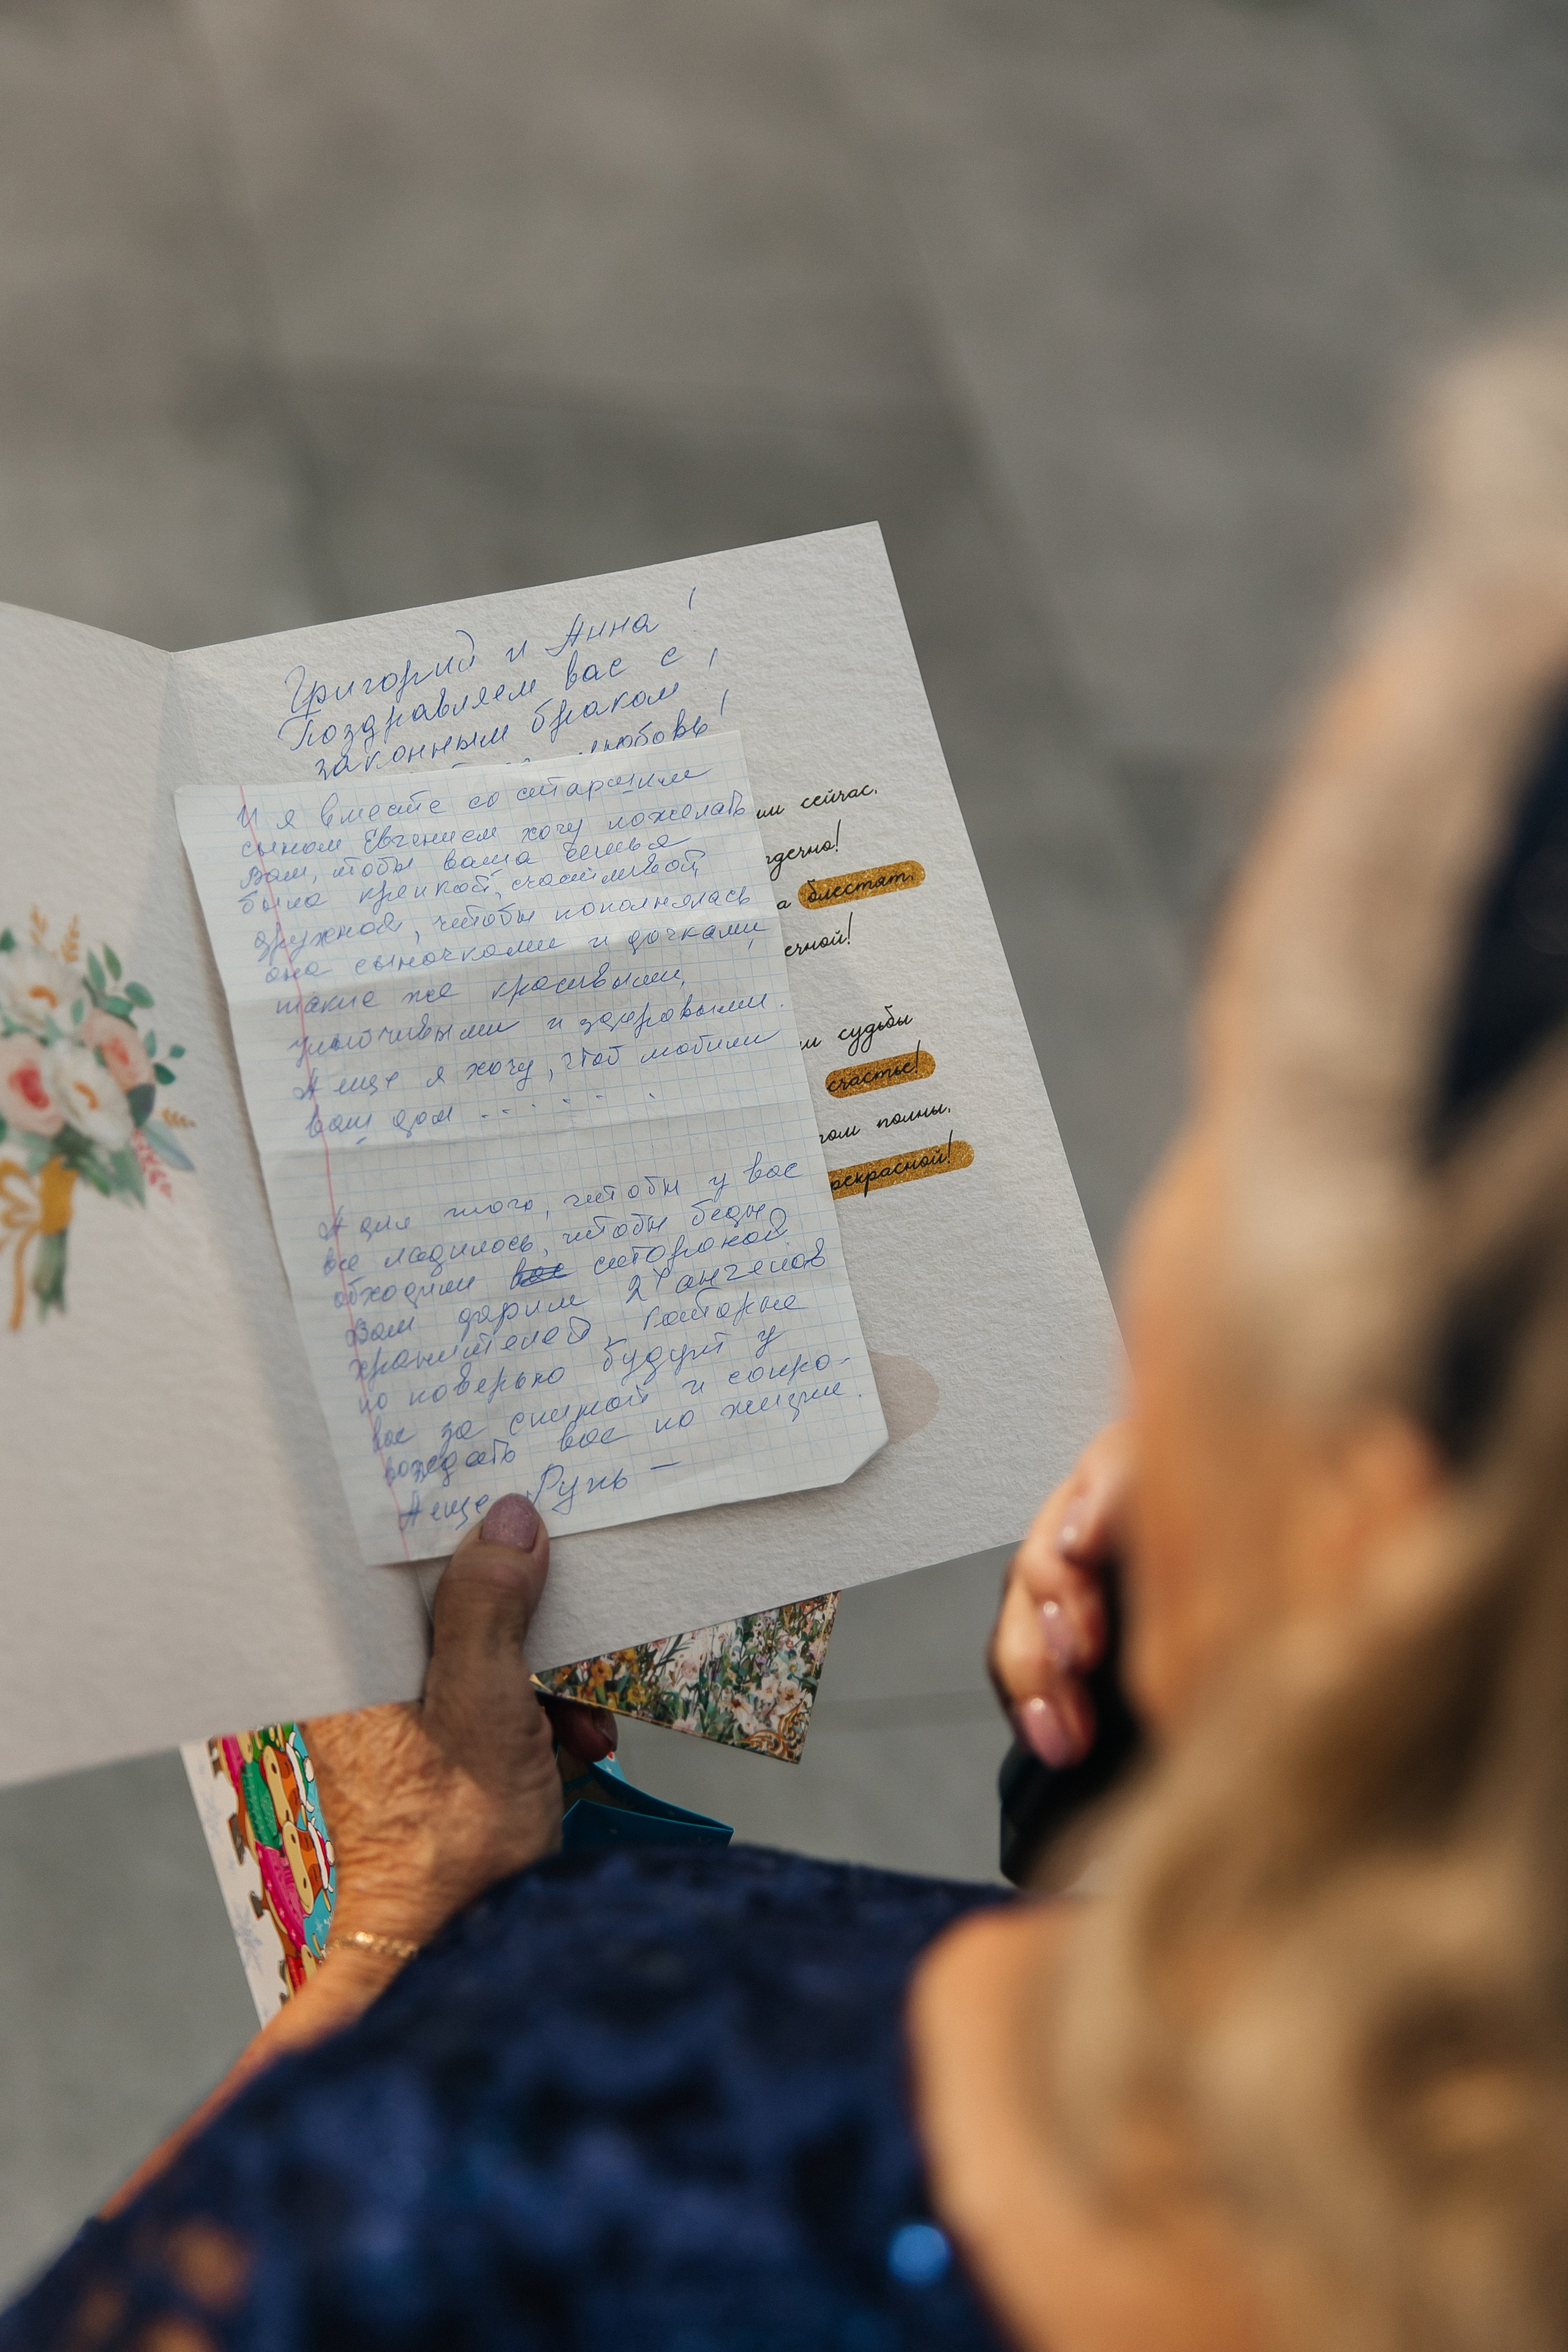 Григорий и Анна!
Поздравляем вас с
законным браком,
любовь!
И я вместе со старшим
сыном Евгением хочу пожелать
Вам, чтобы ваша семья
была крепкой, счастливой,
дружной, чтобы пополнялась
она сыночками и дочками,
такие же красивыми,
улыбчивыми и здоровыми.
А еще я хочу, чтоб любили
ваш дом . . . . . .
А для того, чтобы у вас
все ладилось, чтобы беды
обходили стороной
Вам дарим 2х ангелов
хранителей, которые
по поверью будут у
вас за спиной и сопро-
вождать вас по жизни.
А еще Рунь —
ми сейчас,
рдечно!
а блестят,
ечной!
и судьбы
счастье!
том полны,
рекрасной!